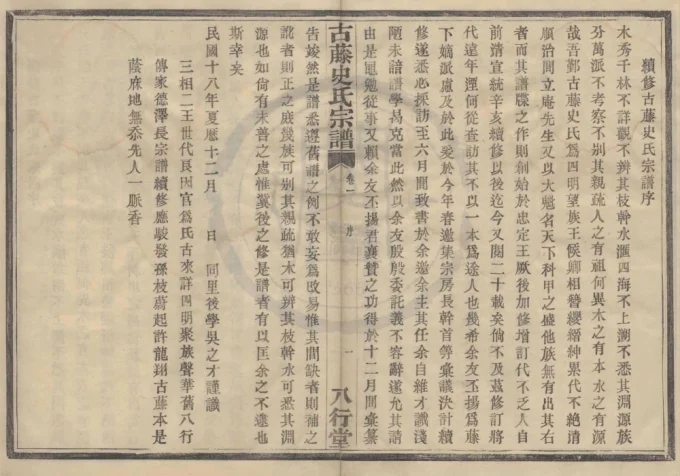 續修古藤史氏宗譜序
木秀千林不詳觀不辨其枝幹水滙四海不上溯不悉其淵源族
分萬派不考察不別其親疏人之有祖何異木之有本水之有源
哉吾鄞古藤史氏爲四明望族王侯卿相簪纓縉紳累代不絶清
順治間立庵先生又以大魁名天下科甲之盛他族無有出其右
者而其譜牒之作則創始於忠定王厥後加修增訂代不乏人自
前清宣統辛亥續修以後迄今又閱二十載矣倘不及茲修訂將
代遠年湮何從查訪其不以一本爲途人也幾希余友丕揚爲藤
下嫡派慮及於此爰於今年春邀集宗房長幹首等彙議決計續
修遂悉心採訪至六月間致書於余邀余主其任余自維才識淺
陋未諳譜學曷克當此然以余友殷殷委託義不容辭遂允其請
由是黽勉從事又賴余友丕揚君襄贊之功得於十二月間彙纂
古藤史氏宗譜
卷一
序
一
八行堂
告竣然是譜悉遵舊譜之例不敢妄爲改易惟其間缺者則補之
訛者則正之庶幾族可別其親疏猶木可辨其枝幹水可悉其淵
源也如尚有未普之處惟冀後之修是譜者有以匡余之不逮也
斯幸矣
民國十八年夏曆十二月 日 同里後學吳之才謹識
三相二王世代長因官爲氏古來詳四明聚族聲華舊八行
傳家德澤長宗譜續修應駿發孫枝蔚起許龍翔古藤本是
蔭庥地無忝先人一脈香